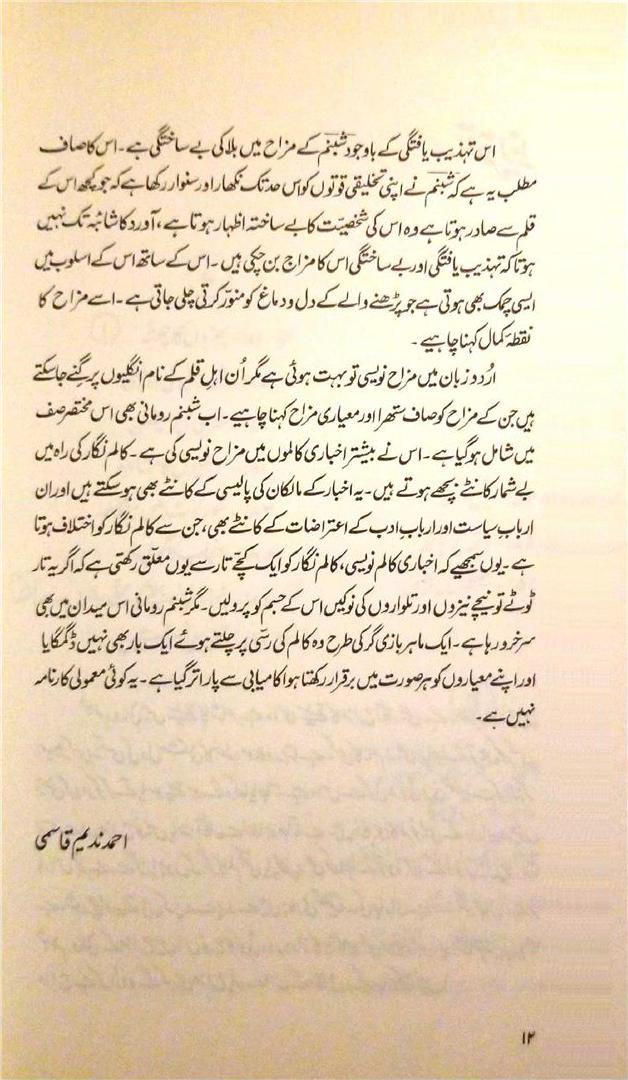 اس تہذیب یافتگی کے باوجود شبنم کے مزاح میں بلا کی بے ساختگی ہے۔ اس کا صاف
مطلب یہ ہے کہ شبنم نے اپنی تخلیقی قوتوں کو اس حد تک نکھار اور سنوار رکھا ہے کہ جو کچھ اس کے
قلم سے صادر ہوتا ہے وہ اس کی شخصیّت کا بے ساختہ اظہار ہوتا ہے، آورد کا شائبہ تک نہیں
ہوتا کہ تہذیب یافتگی اور بے ساختگی اس کا مزاج بن چکی ہیں۔ اس کے ساتھ اس کے اسلوب میں
ایسی چمک بھی ہوتی ہے جو پڑھنے والے کے دل و دماغ کو منوّر کرتی چلی جاتی ہے۔ اسے مزاح کا
نقطۂ کمال کہنا چاہیے۔
اُردو زبان میں مزاح نویسی تو بہت ہوئی ہے مگر اُن اہلِ قلم کے نام انگلیوں پر گِنے جا سکتے
ہیں جن کے مزاح کو صاف ستھرا اور معیاری مزاح کہنا چاہیے۔ اب شبنم رومانی بھی اس مختصر صف
میں شامل ہو گیا ہے۔ اس نے بیشتر اخباری کالموں میں مزاح نویسی کی ہے۔ کالم نگار کی راہ میں
بے شمار کانٹے بچھے ہوتے ہیں۔ یہ اخبار کے مالکان کی پالیسی کے کانٹے بھی ہو سکتے ہیں اور ان
اربابِ سیاست اور اربابِ ادب کے اعتراضات کے کانٹے بھی، جن سے کالم نگار کو اختلاف ہوتا
ہے۔ یوں سمجھیے کہ اخباری کالم نویسی، کالم نگار کو ایک کچّے تار سے یوں معلّق رکھتی ہے کہ اگر یہ تار
ٹوٹے تو نیچے نیزوں اور تلواروں کی نوکیں اس کے جسم کو پرو لیں۔ مگر شبنم رومانی اس میدان میں بھی
سرخرو رہا ہے۔ ایک ماہر بازی گر کی طرح وہ کالم کی رسّی پر چلتے ہوئے ایک بار بھی نہیں ڈگمگایا
اور اپنے معیاروں کو ہر صورت میں برقرار رکھتا ہوا کامیابی سے پار اتر گیا ہے۔ یہ کوئی معمولی کارنامہ
نہیں ہے۔
احمد ندیم قاسمی
۱۲